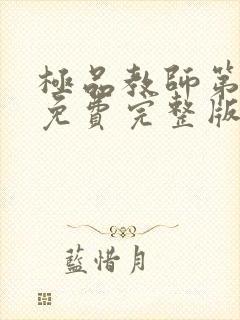 極品教師第
免費完整版
藍惜月